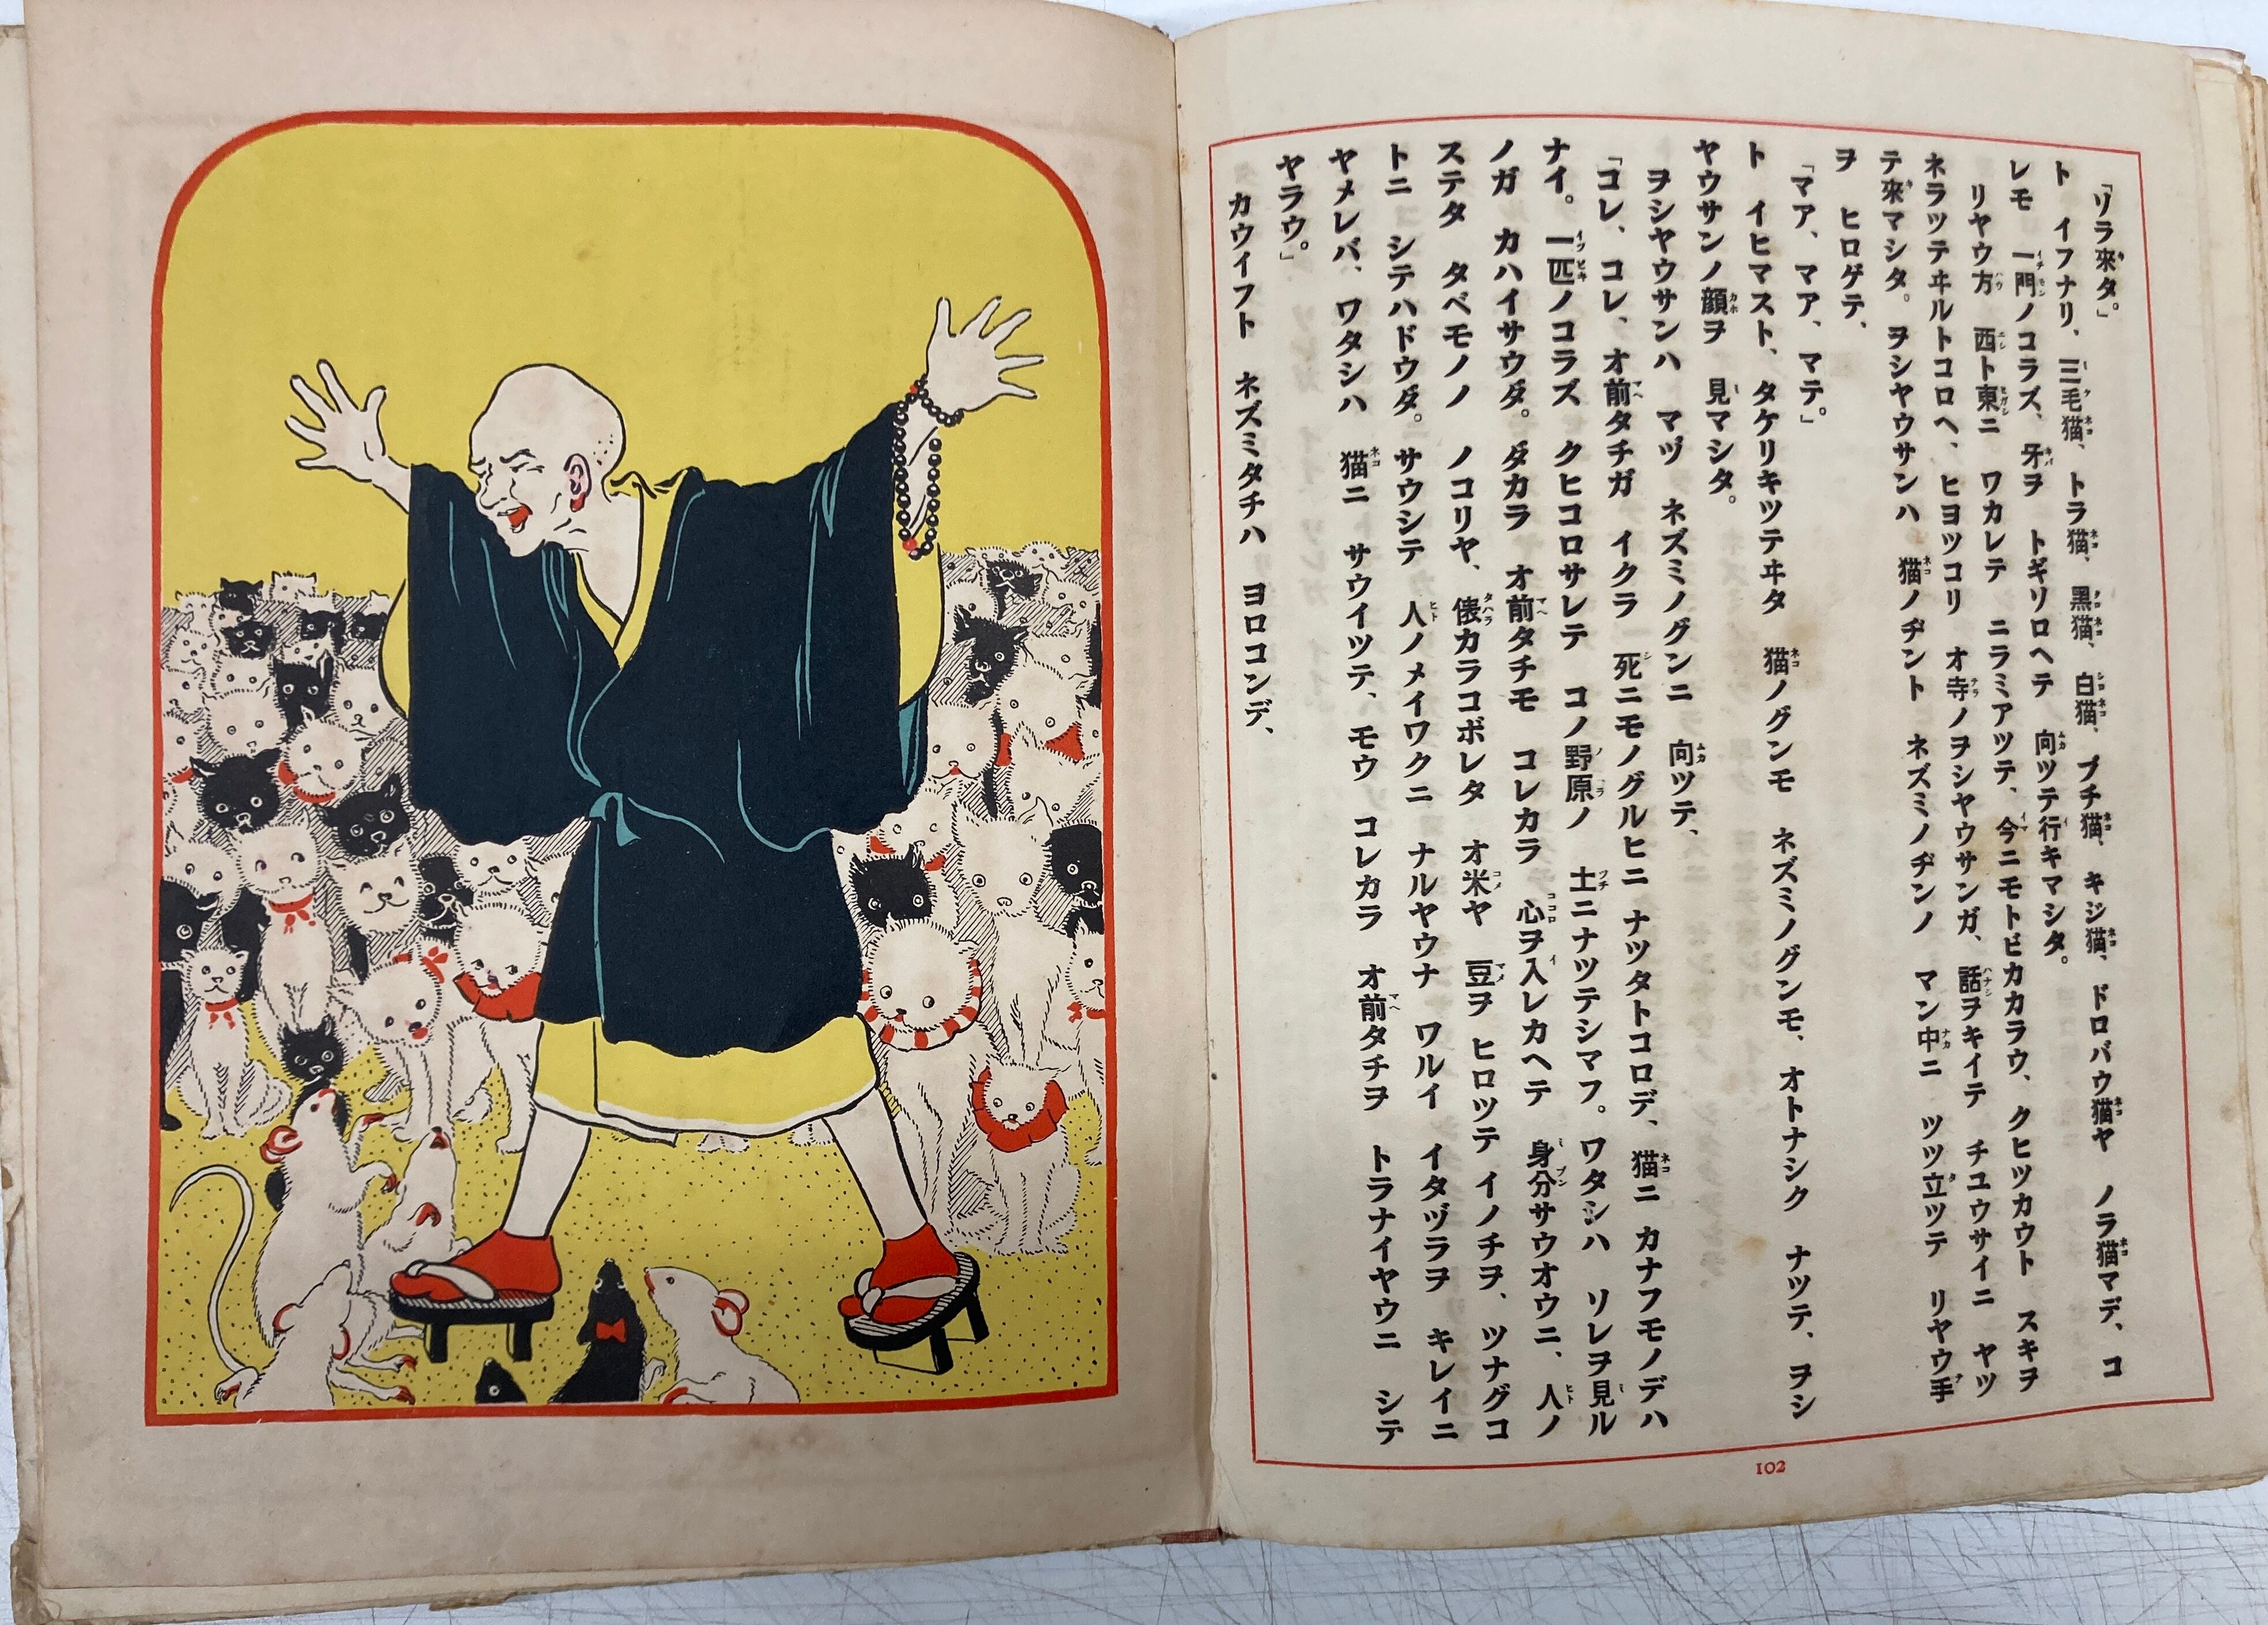 「ソラ來タ。」
ト　イフナリ、三毛猫、トラ猫、黒猫、白猫、ブチ猫、キジ猫、ドロバウ猫ヤ　ノラ猫マデ、コ
レモ　一門ノコラズ、牙ヲ　トギソロヘテ　向ツテ行キマシタ。
リヤウ方　西ト東ニ　ワカレテ　ニラミアツテ、今ニモトビカカラウ、クヒツカウト　スキヲ
ネラツテヰルトコロヘ、ヒヨツコリ　オ寺ノヲシヤウサンガ、話ヲキイテ　チユウサイニ　ヤツ
テ來マシタ。ヲシヤウサンハ　猫ノヂント　ネズミノヂンノ　マン中ニ　ツツ立ツテ　リヤウ手
ヲ　ヒロゲテ、
「マア、マア、マテ。」
ト　イヒマスト、タケリキツテヰタ　猫ノグンモ　ネズミノグンモ、オトナシク　ナツテ、ヲシ
ヤウサンノ顔ヲ　見マシタ。
ヲシヤウサンハ　マヅ　ネズミノグンニ　向ツテ、
「コレ、コレ、オ前タチガ　イクラ　死ニモノグルヒニ　ナツタトコロデ、猫ニ　カナフモノデハ
ナイ。一匹ノコラズ　クヒコロサレテ　コノ野原ノ　土ニナツテシマフ。ワタシハ　ソレヲ見ル
ノガ　カハイサウダ。ダカラ　オ前タチモ　コレカラ　心ヲ入レカヘテ　身分サウオウニ、人ノ
ステタ　タベモノノ　ノコリヤ、俵カラコボレタ　オ米ヤ　豆ヲ　ヒロツテ　イノチヲ、ツナグコ
トニ　シテハドウダ。サウシテ　人ノメイワクニ　ナルヤウナ　ワルイ　イタヅラヲ　キレイニ
ヤメレバ、ワタシハ　猫ニ　サウイツテ、モウ　コレカラ　オ前タチヲ　トラナイヤウニ　シテ
ヤラウ。」
カウイフト　ネズミタチハ　ヨロコンデ、
102